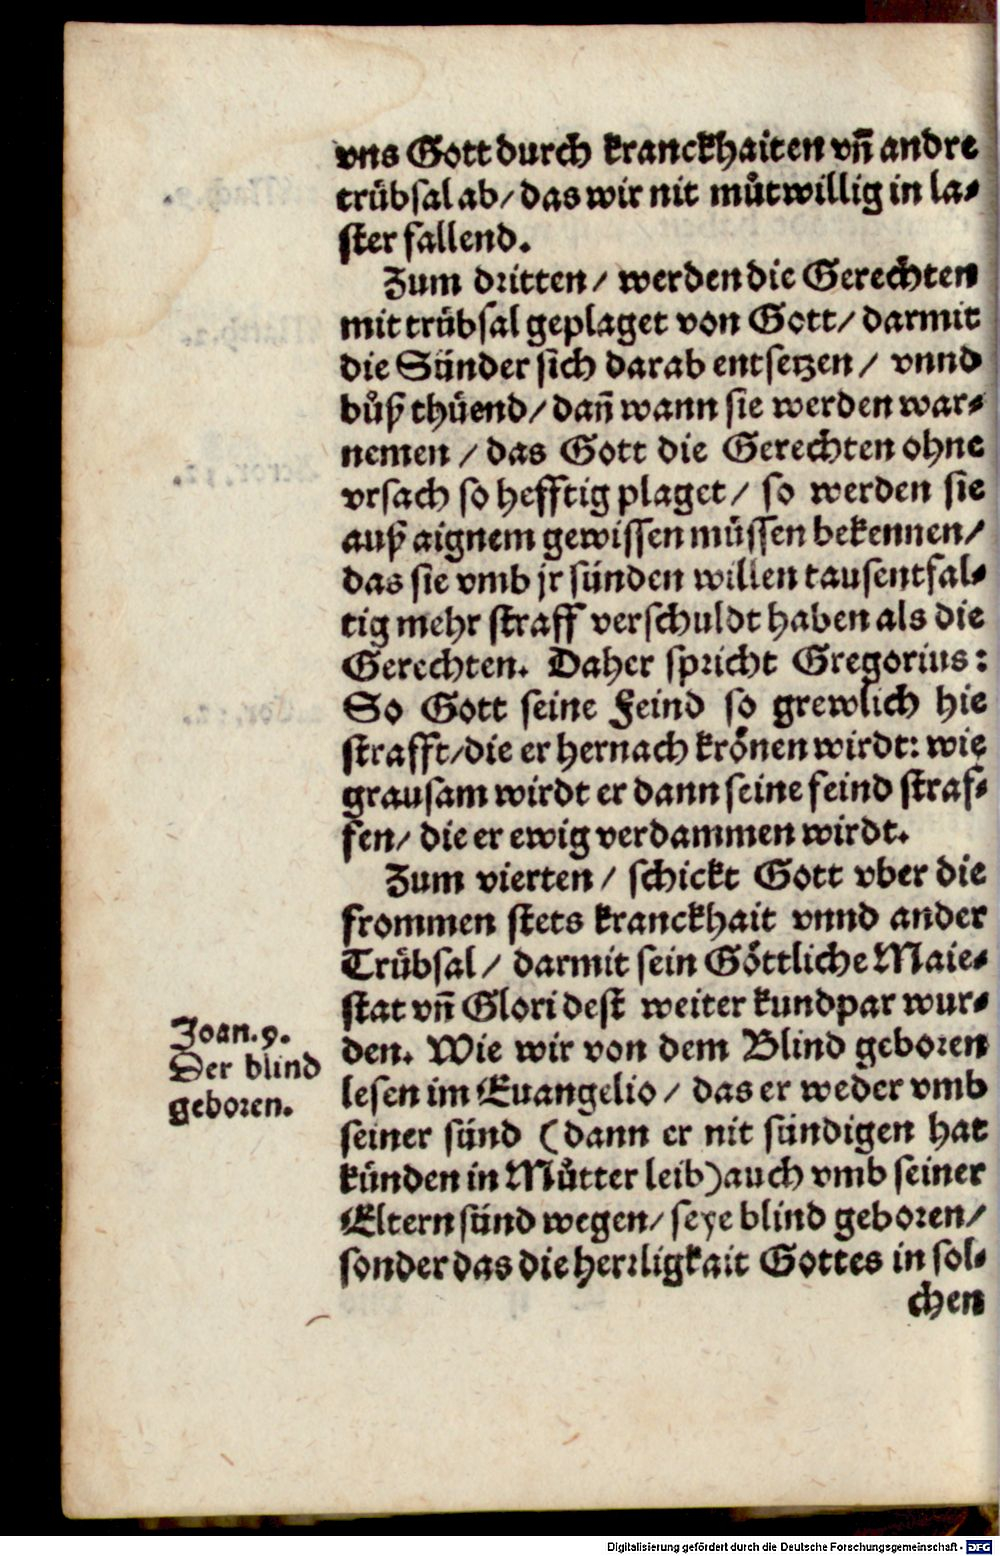 vns Gott durch kranckhaiten vñ andre
trübsal ab/ das wir nit můtwillig in la⸗
ster fallend.
Zum dritten/ werden die Gerechten
mit trübsal geplaget von Gott/ darmit
die Sünder sich darab entsetzen/ vnnd
bůß thüend/ dañ wann sie werden war⸗
nemen/ das Gott die Gerechten ohne
vrsach so hefftig plaget/ so werden sie
auß aignem gewissen müssen bekennen/
das sie vmb jr sünden willen tausentfal⸗
tig mehr straff verschuldt haben als die
Gerechten. Daher spricht Gregorius:
So Gott seine Feind so grewlich hie
strafft/ die er hernach krönen wirdt: wie
grausam wirdt er dann seine feind straf⸗
fen/ die er ewig verdammen wirdt.
Zum vierten/ schickt Gott vber die
frommen stets kranckhait vnnd ander
Trübsal/ darmit sein Göttliche Maie⸗
stat vñ Glori dest weiter kundpar wur⸗
den. Wie wir von dem Blind geboren
lesen im Euangelio/ das er weder vmb
seiner sünd (dann er nit sündigen hat
künden in Můtter leib) auch vmb seiner
Eltern sünd wegen/ seye blind geboren/
sonder das die herrligkait Gottes in sol⸗
chen
Joan. 9.
Der blind
geboren.
Digitalisierung gefördert durch die Deutsche Forschungsgemeinschaft - DFG